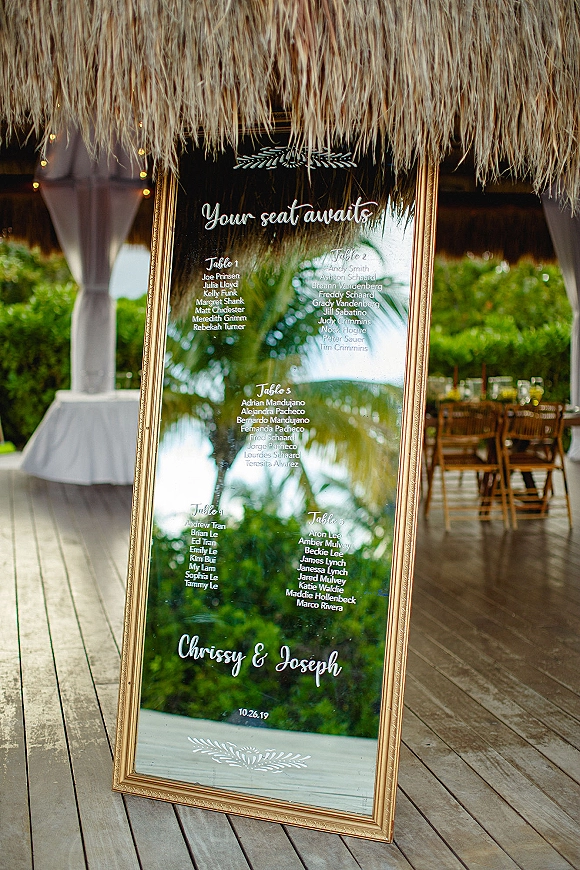 Your seat awaits
Table 1
Joe Prinsen
Julia Lloyd
Kelly Funk
Margret Shank
Matt Chidester
Meredith Grimm
Rebekah Turner
Table 2
Andy Smith
Allison Schaard
Brainn Vandenberg
Freddy Schaard
Grady Vandenberg
Jill Sabatino
Judy Crimmins
Nora Hoghe
Peter Sauer
Tim Crimmins
Table 3
Adrian Mandujano
Alejandra Pacheco
Bernardo Mandujano
Fernanda Pacheco
Fred Schaard
Jorge Pacheco
Lourdes Schaard
Teresita Alvarez
Table 4
Andrew Tran
Brian Le
Ed Tran
Emily Le
Kim Bui
My Lam
Sophia Le
Tammy Le
Table
Aron Lee
Amber Mulvey
Beckie Lee
James Lynch
Janessa Lynch
Jared Mulvey
Katie Waldie
Maddie Hollenbeck
Marco Rivera
Chrissy & Joseph
10.26.19